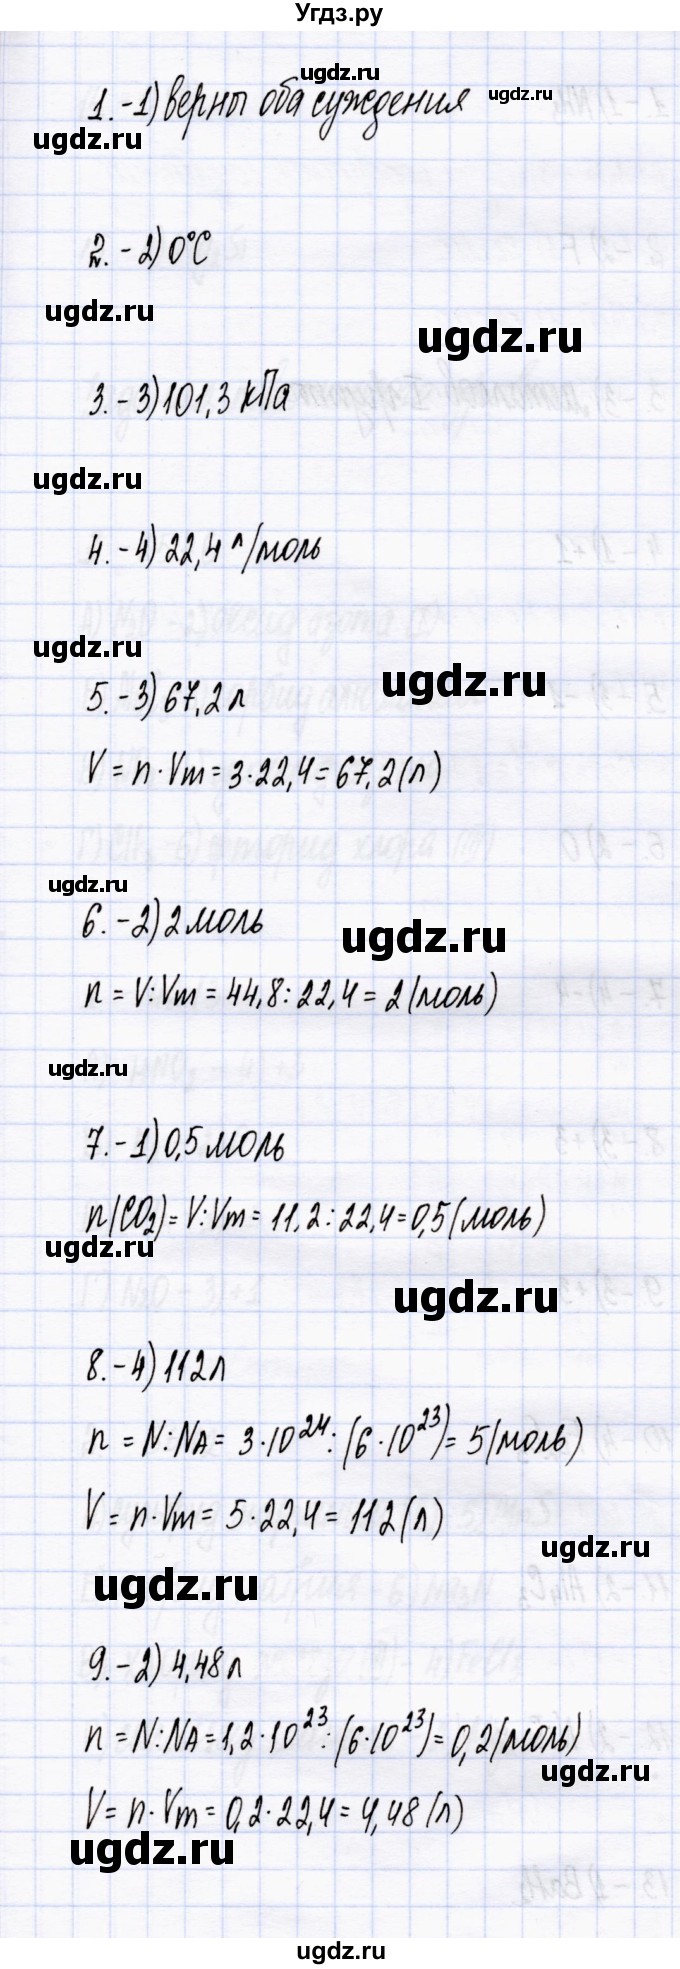 Угдз.ру
ugdz.ru
ugdz.ru
1. - 1) верны оба суждения
ugdz.ru
2. - 2) 0°C
ugdz.ru
ugdz.ru
3. - 3) 101,3 кПа
ugdz.ru
4. - 4) 22,4 л/моль
ugdz.ru
ugdz.ru
5. - 3) 67,2 л
V = n · Vm = 3 · 22,4 = 67,2 (л)
ugdz.ru
6. - 2) 2 моль
ugdz.ru
n = V : Vm = 44,8 : 22,4 = 2 (моль)
ugdz.ru
7. - 1) 0,5 моль
n(CO₂) = V : Vm = 11,2 : 22,4 = 0,5 (моль)
ugdz.ru
ugdz.ru
8. - 4) 112 л
n = N : NA = 3 · 10²⁴ : (6 · 10²³) = 5 (моль)
V = n · Vm = 5 · 22,4 = 112 (л)
ugdz.ru
ugdz.ru
9. - 2) 4,48 л
n = N : NA = 1,2 · 10²³ : (6 · 10²³) = 0,2 (моль)
ugdz.ru
V = n · Vm = 0,2 · 22,4 = 4,48 (л)
ugdz.ru
ugdz.ru